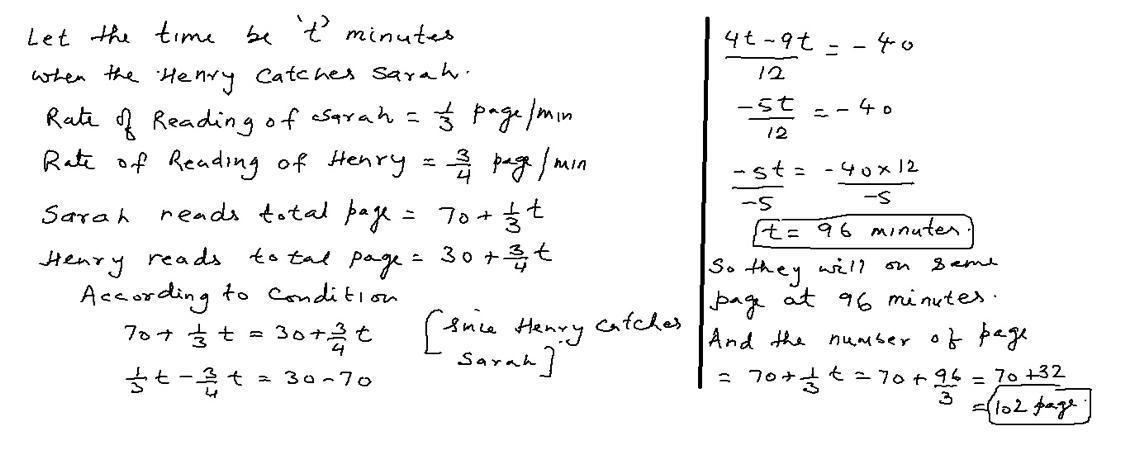 Let the time be 't' minutes
when the Henry Catches Sarah.
Rate of Reading of Sarah = 1/3 page/min
Rate of Reading of Henry = 3/4 page/min
Sarah reads total page = 70 + 1/3 t
Henry reads total page = 30 + 3/4 t
According to Condition
70 + 1/3 t = 30 + 3/4 t
[Since Henry Catches
Sarah]
1/3 t - 3/4 t = 30 - 70
(4t - 9t)/12 = - 40
-5t/12 = - 40
-5t/-5 = (-40 × 12)/-5
t = 96 minutes.
So they will on same
page at 96 minutes.
And the number of page
= 70 + 1/3 t = 70 + 96/3 = 70 + 32
= 102 page.